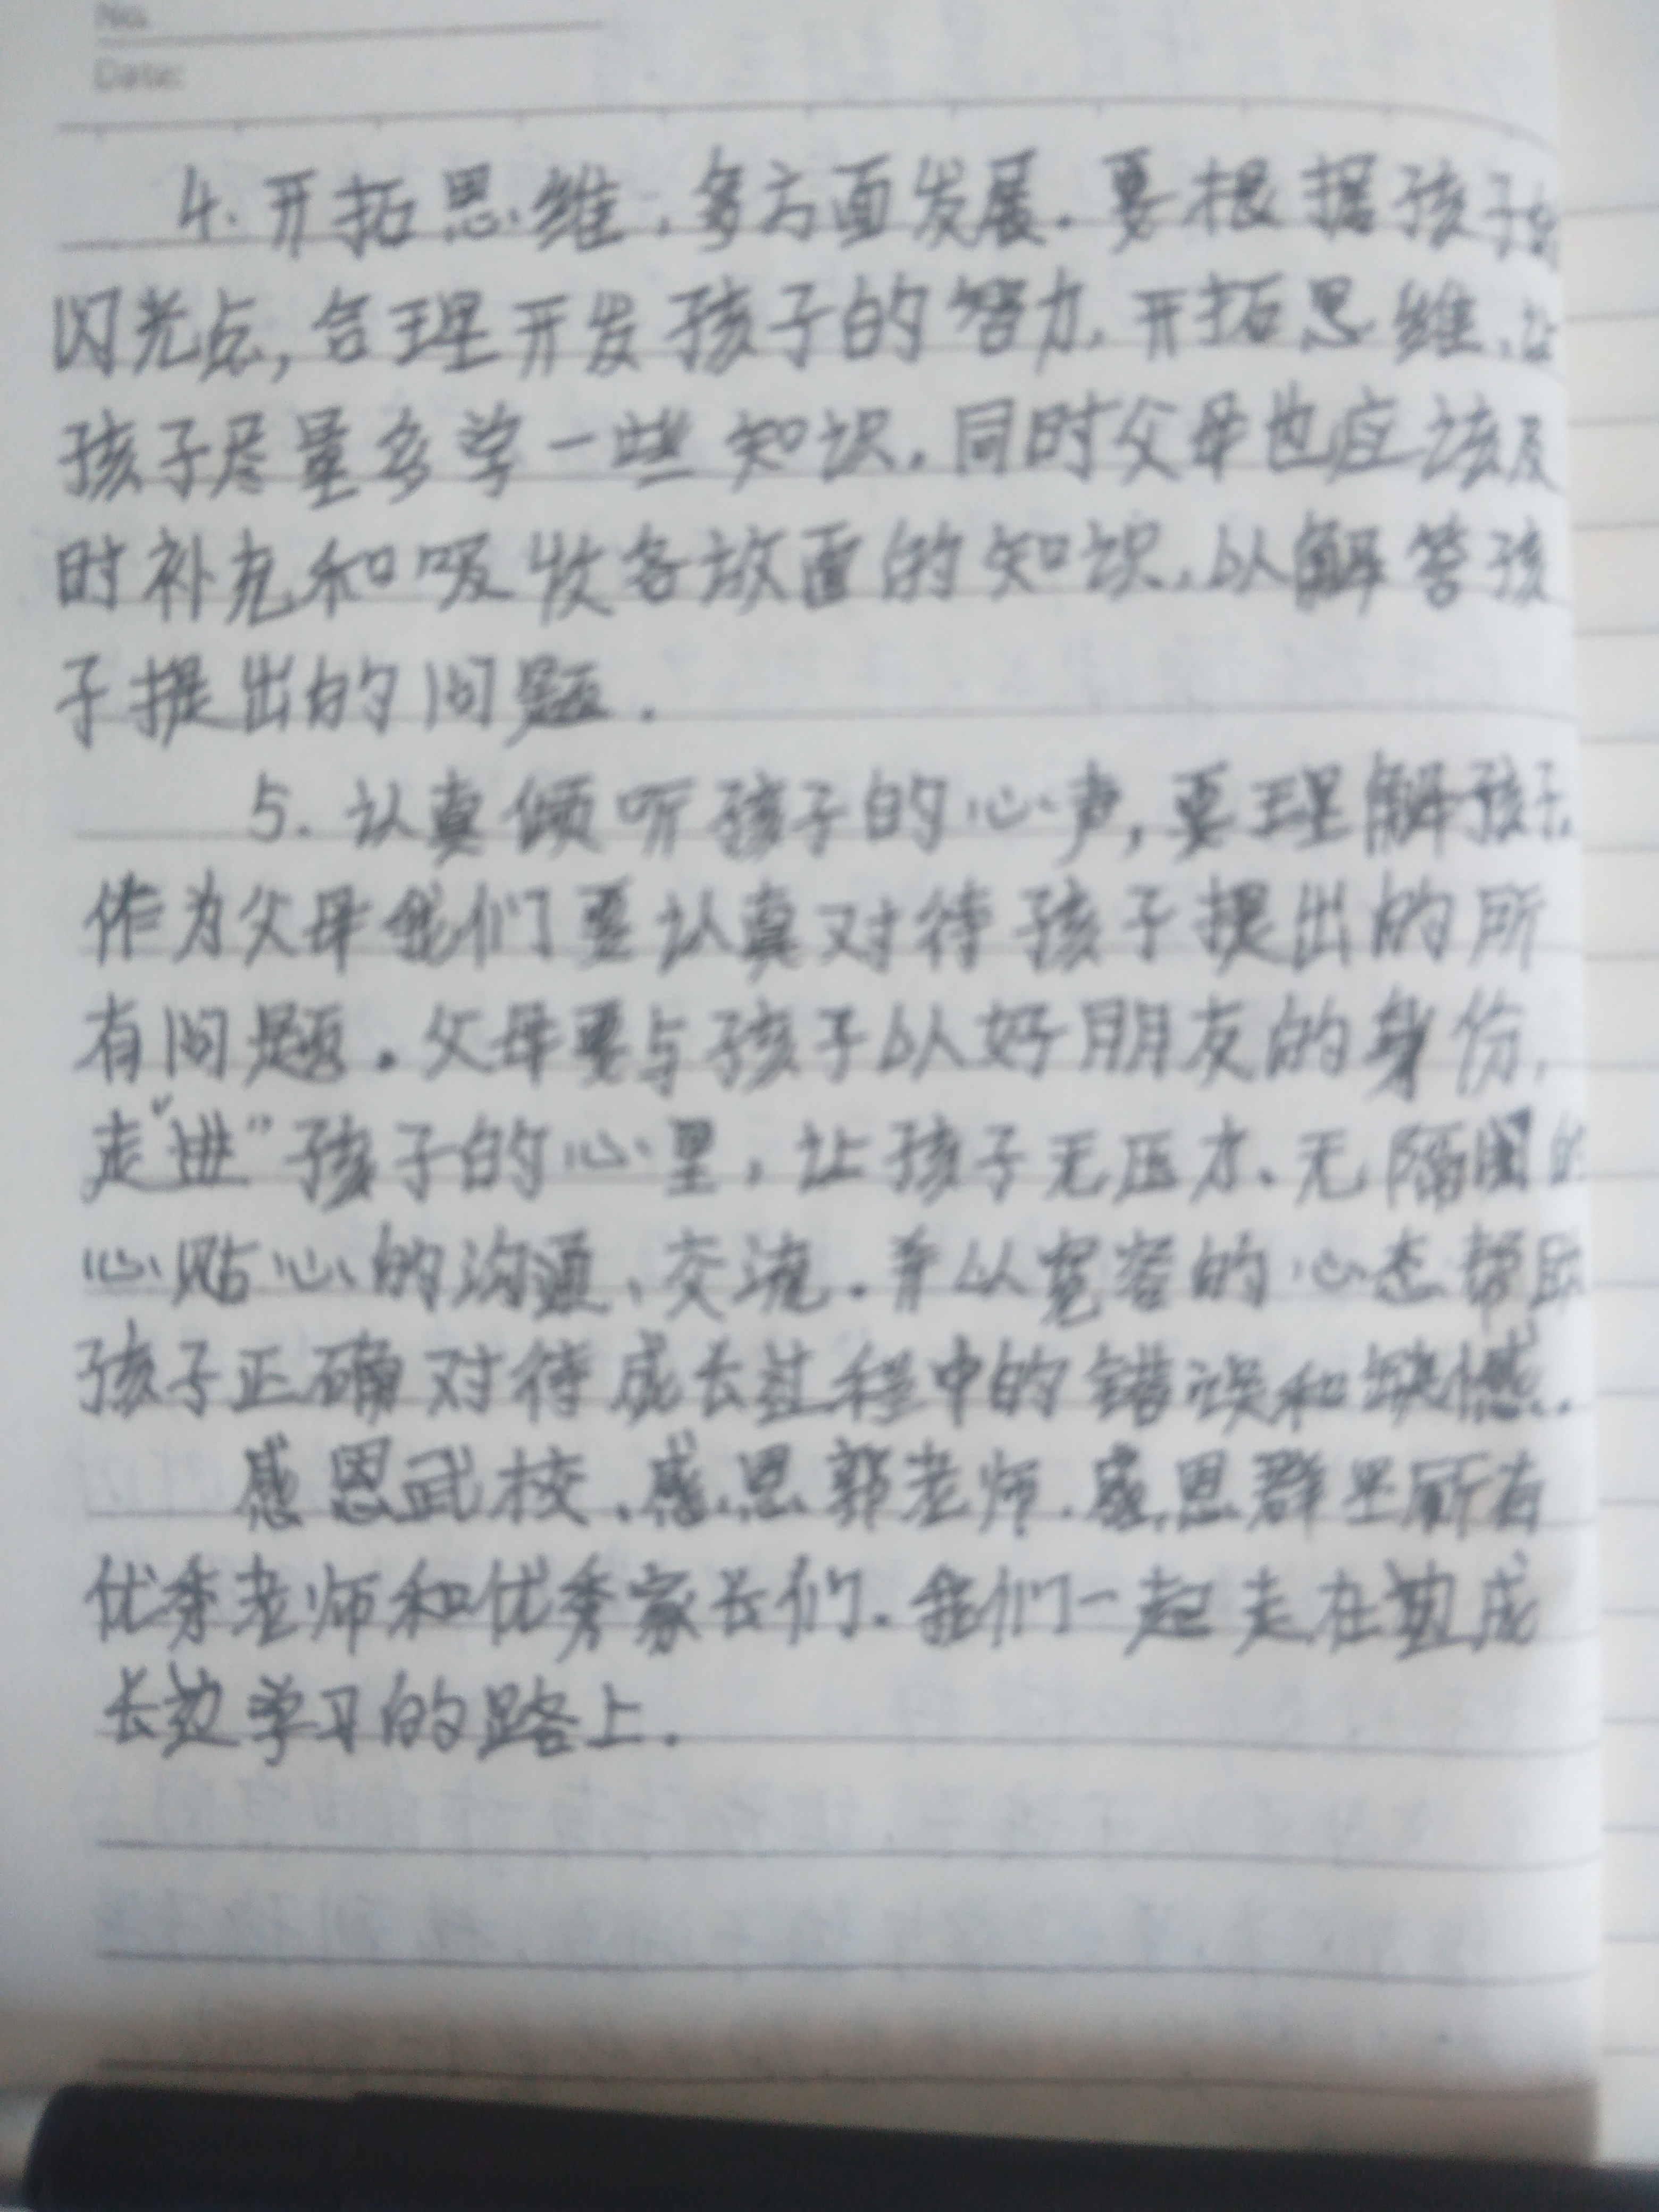 No.
Date:
4. 开拓思维，多方面发展．要根据孩子的
闪光点，合理开发孩子的智力，开拓思维，让
孩子尽量多学一些知识．同时父母也应该及
时补充和吸收各放面的知识，以解答孩
子提出的问题．
5. 认真倾听孩子的心声，要理解孩子．
作为父母我们要认真对待孩子提出的所
有问题．父母要与孩子以好朋友的身份，
走“进”孩子的心里，让孩子无压力、无隔阂的
心贴心的沟通、交流．并以宽容的心态帮助
孩子正确对待成长过程中的错误和缺憾．
感恩武校，感恩郭老师．感恩群里所有
优秀老师和优秀家长们．我们一起走在边成
长边学习的路上．